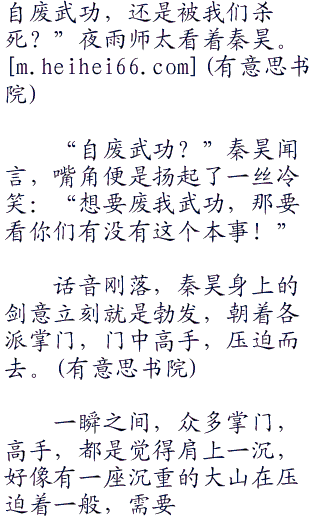 自废武功，还是被我们杀
死？”夜雨师太看着秦昊。
[m.heihei66.com](有意思书
院)
“自废武功？”秦昊闻
言，嘴角便是扬起了一丝冷
笑：“想要废我武功，那要
看你们有没有这个本事！”
话音刚落，秦昊身上的
剑意立刻就是勃发，朝着各
派掌门，门中高手，压迫而
去。(有意思书院)
一瞬之间，众多掌门，
高手，都是觉得肩上一沉，
好像有一座沉重的大山在压
迫着一般，需要